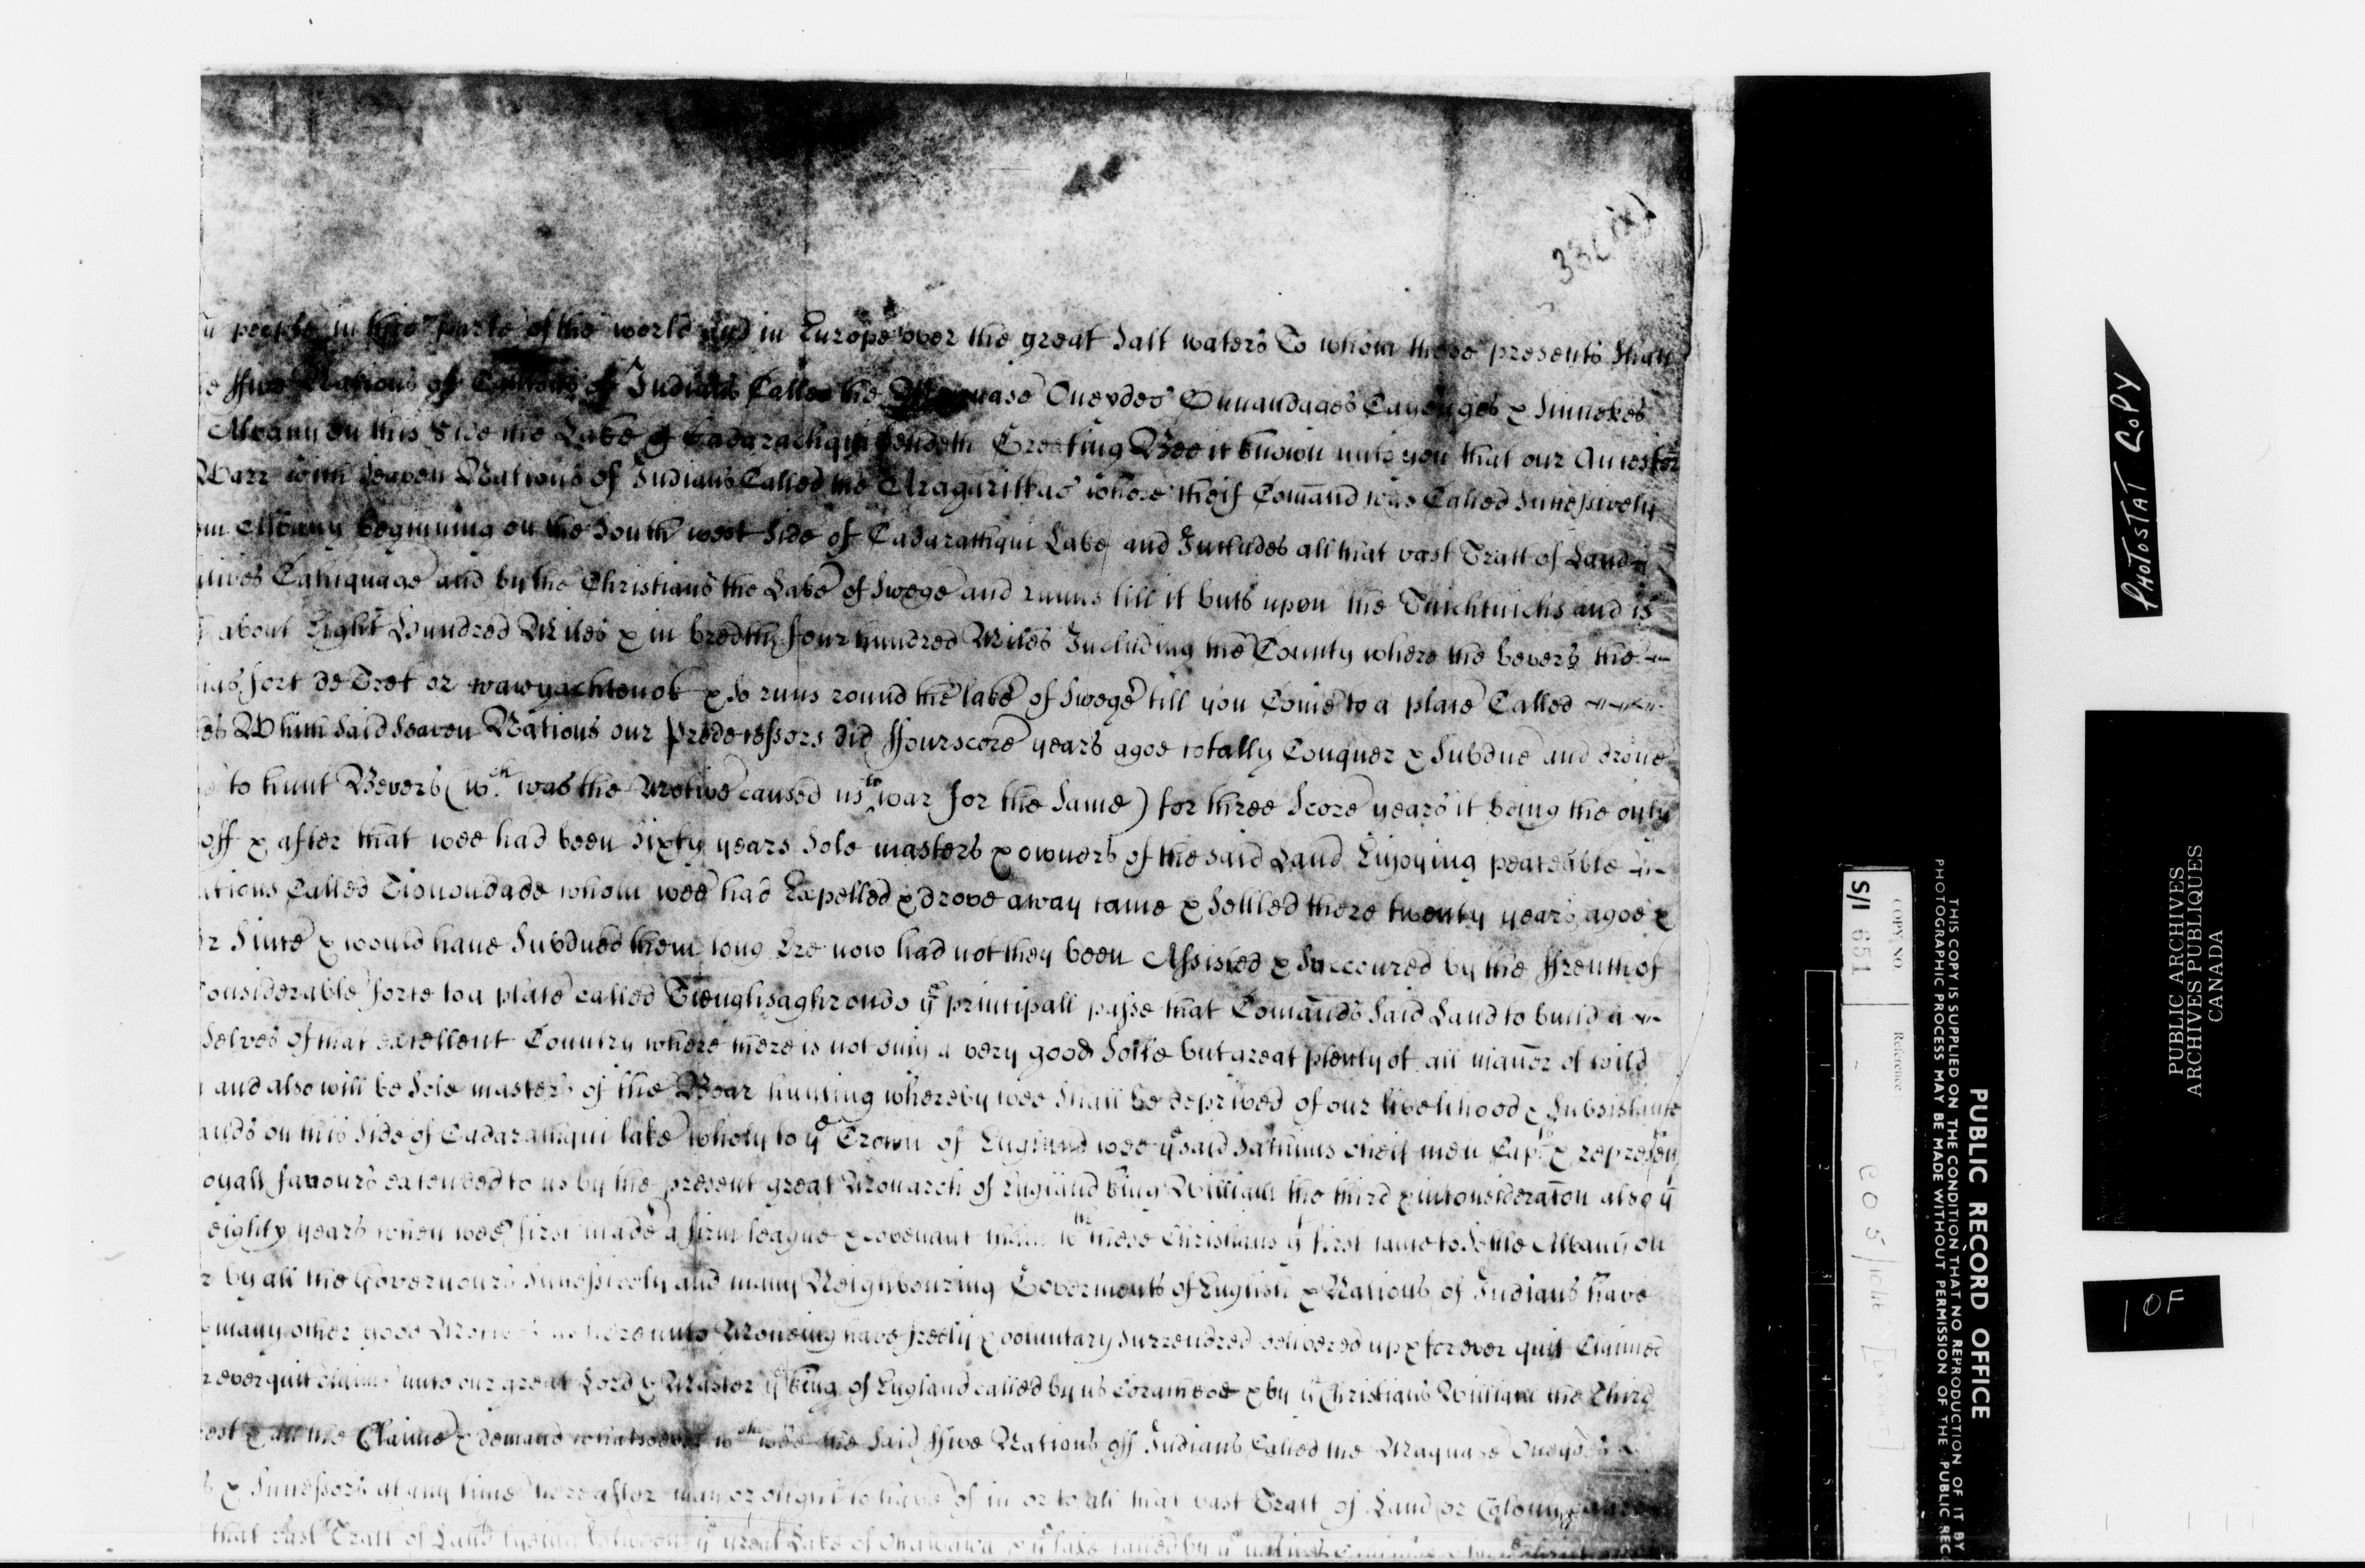 33(ix)
people in this parts of the world and in Europe over the great Salt waters To whom these presents Shall
ffive Nations of Indians Called the Maquase Oneydes Onnandages Cayouges & Sinnekes
Albany on this Side the Lake of Cadarachqui Sendeth Greeting Bee it known unto you that our Ancestors
Warr with Seaven Nations of Indians Called the Aragaritkas whose cheif Comand was Called Successively
Albany beginning on the South west Side of Cadarachqui Lake and Includes all that vast Tract of Land
Cahiquage and by the Christians the Lake of Swege and runns till it buts upon the Twichtwichs and is
about Eight Hundred Miles & in bredth four hundred Miles Including the County where the bevers the
fort de Tret or wawyachtenok & So runs round the lake of Swege till you Come to a place Called
Which Said Seaven Nations our Predecessors did ffourscore years agoe totally Conquer & Subdue and drove
to hunt Bevers (wch was the Motive caused us to war for the Same) for three Score years it being the only
off & after that wee had been Sixty years Sole masters & owners of the said Land Enjoying peaceable
Called Tionondade whom wee had Expelled & drove away came & Settled there twenty years agoe &
Since & would have Subdued them long Ere now had not they been Assisted & Succoured by the ffrench of
Considerable force to a place called Tieughsaghrondo ye principall passe that Comands Said Land to build a
Selves of that excellent Country where there is not only a very good Soile but great plenty of all maner of wild
and also will be Sole masters of the Boar hunting whereby wee Shall be deprived of our livelihood & Subsistance
on this Side of Cadarachqui lake wholy to ye Crown of England wee ye said Sachims cheif men Capts & represen
oyall favours extended to us by the present great Monarch of England King William the third & in consideration also yt
eighty years when wee first made a firm league & covenant chain wth these Christians yt first came to Settle Albany on
by all the Governours Successively and many Neighbouring Goverments of English & Nations of Indians have
many other good Motives us hereunto Moveing have freely & voluntary Surrendred delivered up & for ever quit Claimed
ever quit claime unto our great Lord & Master ye King of England called by us Corachkoo & by ye Christians William the Third
all the Claime & demand whatsoever wch wee the Said ffive Nations off Indians Called the Maquase Oneydes
& Successors at any time hereafter may or ought to have of in or to all that vast Tract of Land or Colony
that vast Tract of Land lyeing between ye great Lake of Ottawawa & ye lake called by ye natives
PHOTOSTAT COPY
PUBLIC ARCHIVES
ARCHIVES PUBLIQUES
CANADA
1 OF
PUBLIC RECORD OFFICE
THIS COPY IS SUPPLIED ON THE CONDITION THAT NO REPRODUCTION OF IT BY
PHOTOGRAPHIC PROCESS MAY BE MADE WITHOUT PERMISSION OF THE PUBLIC REC
COPY NO.
S/1 651
Reference
CO 5/1046
1 2 3 4 5